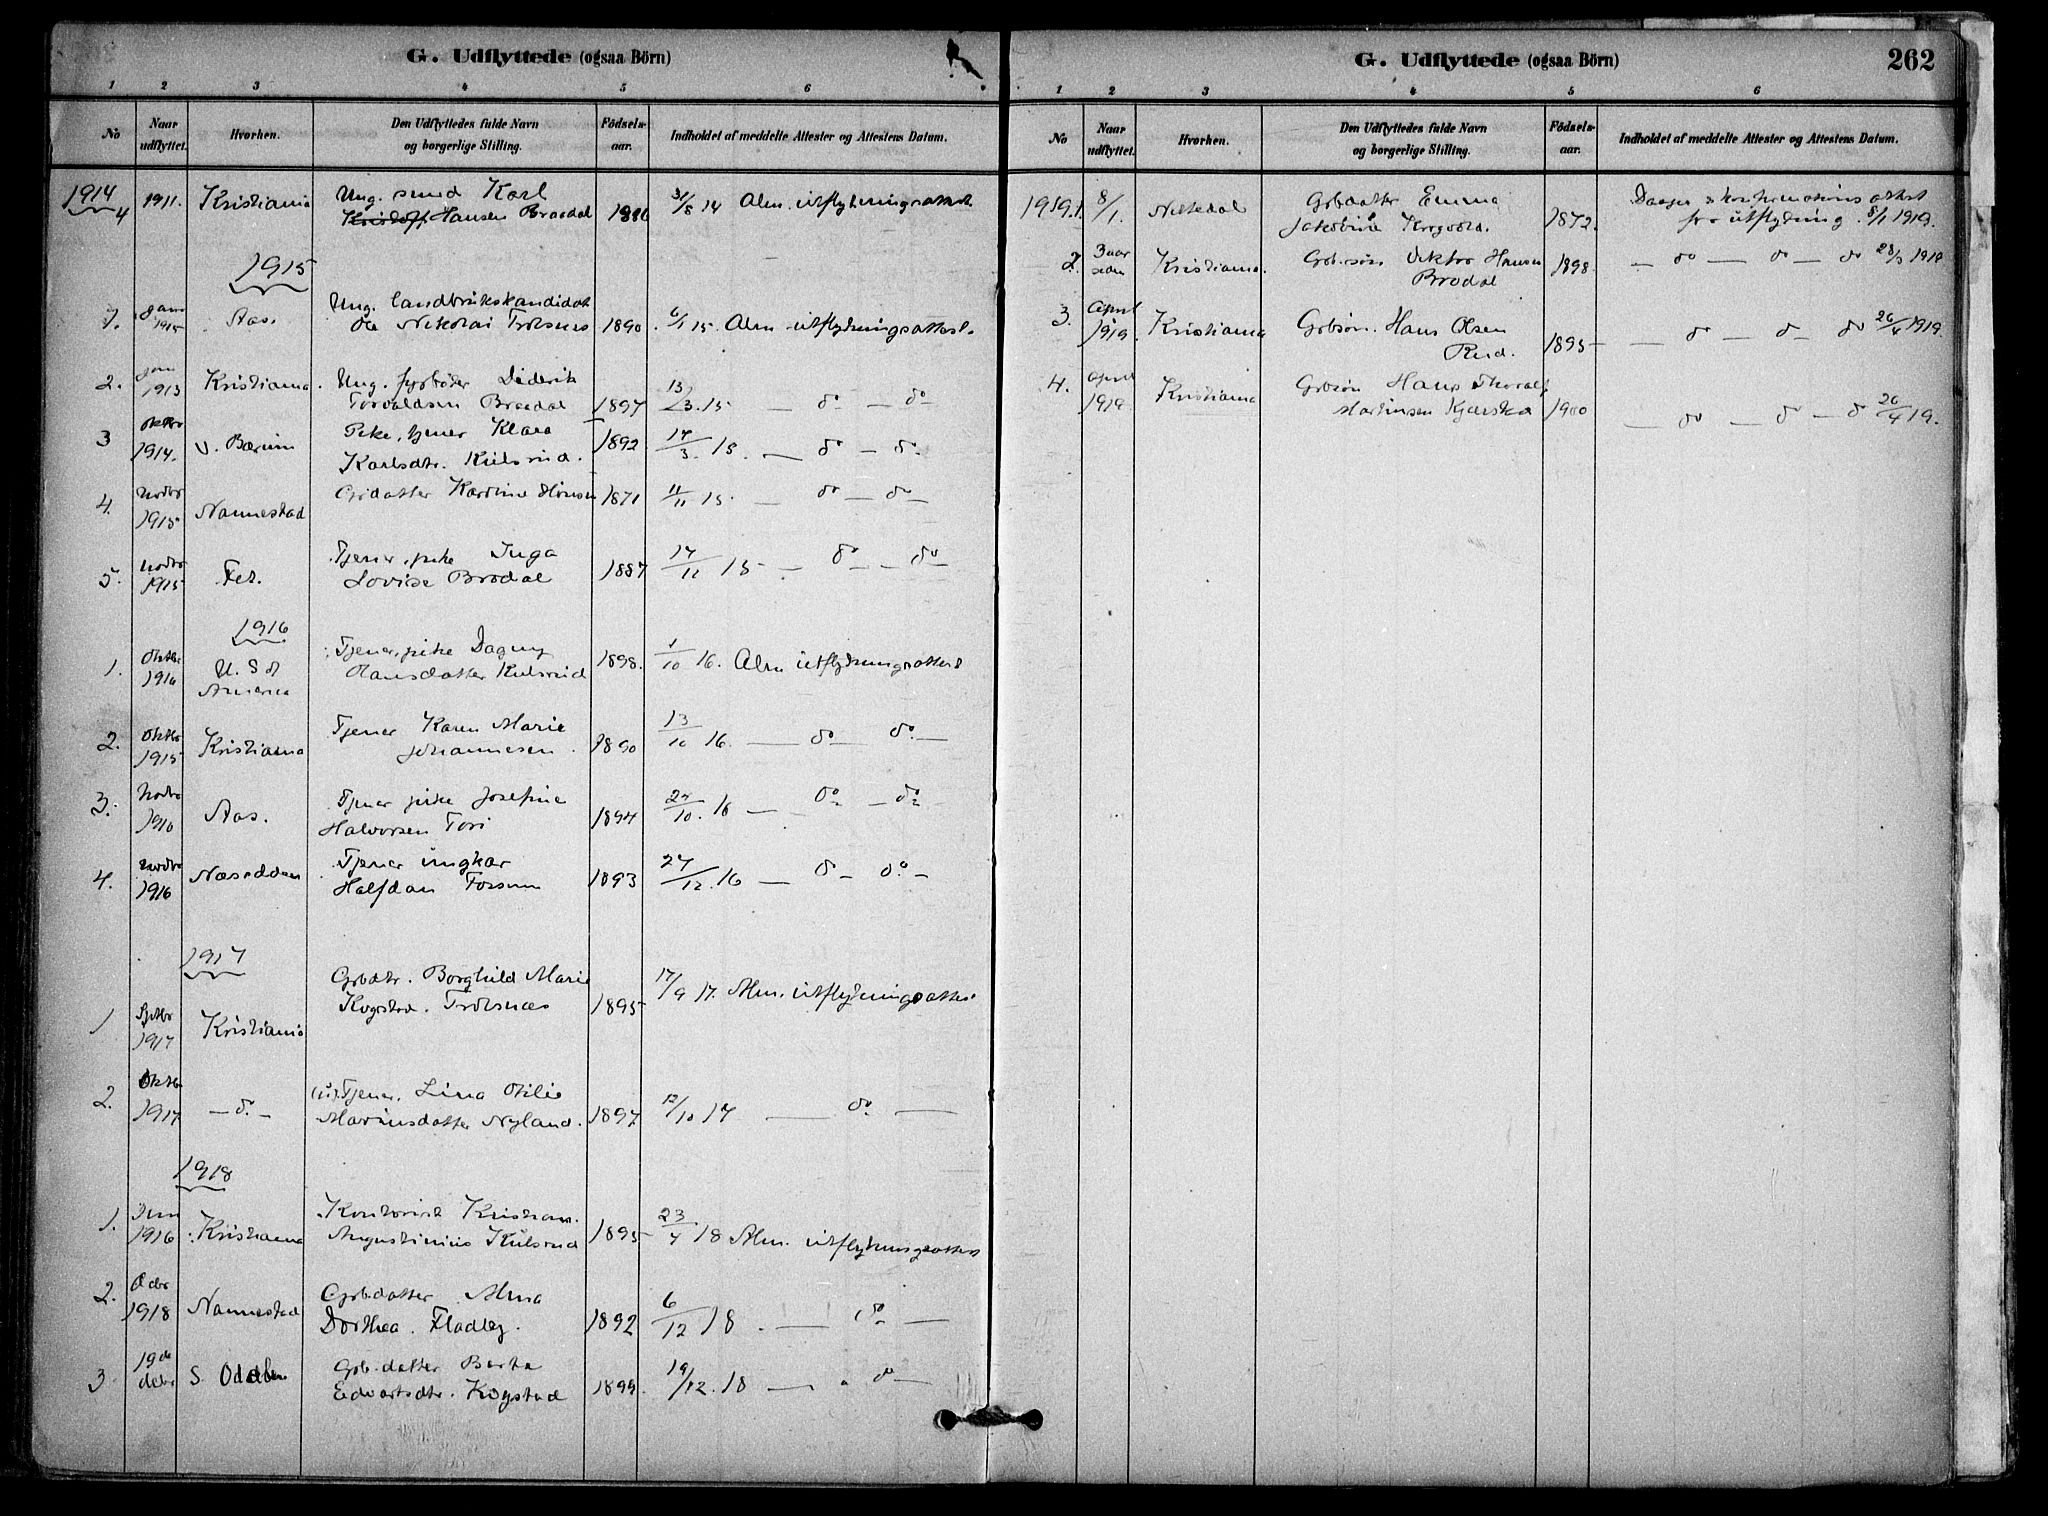 G. Udflyttede (ogsaa Börn)
1 2 3 4 5 6
No
Naar udflyttet.
Hvorhen.
Den Udflyttedes fulde Navn
og borgerlige Stilling.
Födsels-
aar.
Indholdet af meddelte Attester og Attestens Datum.
1914
4 1911. Kristiania Ung. smed Karl
Hansen Brodal 1886 31/8 14 Alm. utflytningsattest
1915
1. Janr 1915 Aas. Ung. landbrukskandidat
Ole Nikolai Trölsnes 1890 6/1 15. Alm. utflytningsattest.
2. Jan 1913 Kristiania. Ung. fyrböter Diderik
Torvaldsen Brodal 1897 13/3. 15 — do — do —
3 Oktbr 1914. V. Bærum Pike, tjener Klara
Karlsdtr. Kulsrud. 1892 17/3. 15. — do — do.
4. Novbr 1915 Nannestad Gbdatter Karoline Hansen 1871 11/11 15. — do — do —
5. Novbr 1915 Fet. Tjener, pike Inga
Lovise Brodal 1887 17/11 15 — do — do —
1916
1. Oktbr 1916 U. S of
America Tjener, pike Dagny
Hansdatter Kulsrud 1898. 1/10 16. Alm utflytningsattest
2. Oktbr 1915 Kristiania Tjener Karen Marie
Johannesen 1890 13/10 16. — do — do. —
3. Novbr 1910 Aas. Tjener pike Josefine
Halvorsen 1894 27/10. 16 — do — do
4. Novbr 1916 Næsodden Tjener ungkar
Halfdan Fossum 1893 27/12. 16 — do — do. —
1917
1 Sptbr 1917 Kristiania Gbdtr. Borghild Marie
Kogstad. Trölsnæs 1895 17/9 17. Alm. utflytningsattest
2. Oktbr 1917 — do. — Tjener, Lina Otilie
Marinsdatter Nyland. 1897 12/10 17 — do. —
1918
1. Juni 1916 Kristiania Kontorist Kristian
Augustinius Kulsrud 1895 23/4 18 Alm. utflytningsattest
2. Dcbr 1918 Nannestad Gbdatter Alma
Dorthea. Fladby. 1892 6/12 18. — do —
3. 19de debr S. Odalen Gbdatter Berta
Edvartsdtr. Kogstad 1899. 19/12. 18 — do —
G. Udflyttede (ogsaa Börn) 262
1 2 3 4 5 6
No
Naar udflyttet.
Hvorhen.
Den Udflyttedes fulde Navn
og borgerlige Stilling.
Födsels-
aar.
Indholdet af meddelte Attester og Attestens Datum.
1919. 1. 8/1. Nittedal Gbdatter Emma
Jakobine Krogvold. 1872. Daaps & konfirmations attest
for utflytning. 8/1 1919.
2. 3 aar siden Kristiania. Gbsön Viktor Hansen
Brodal 1898 — do — do — do 28/3 1919
3. April 1919. Kristiania Gbsön. Hans Olsen
Rud. 1895 — do — do — do 26/4 1919.
4. April 1919 Kristiania Gbsön Hans Thoralf
Martinsen Kjærstad 1900 — do — do — do 26/4 19.